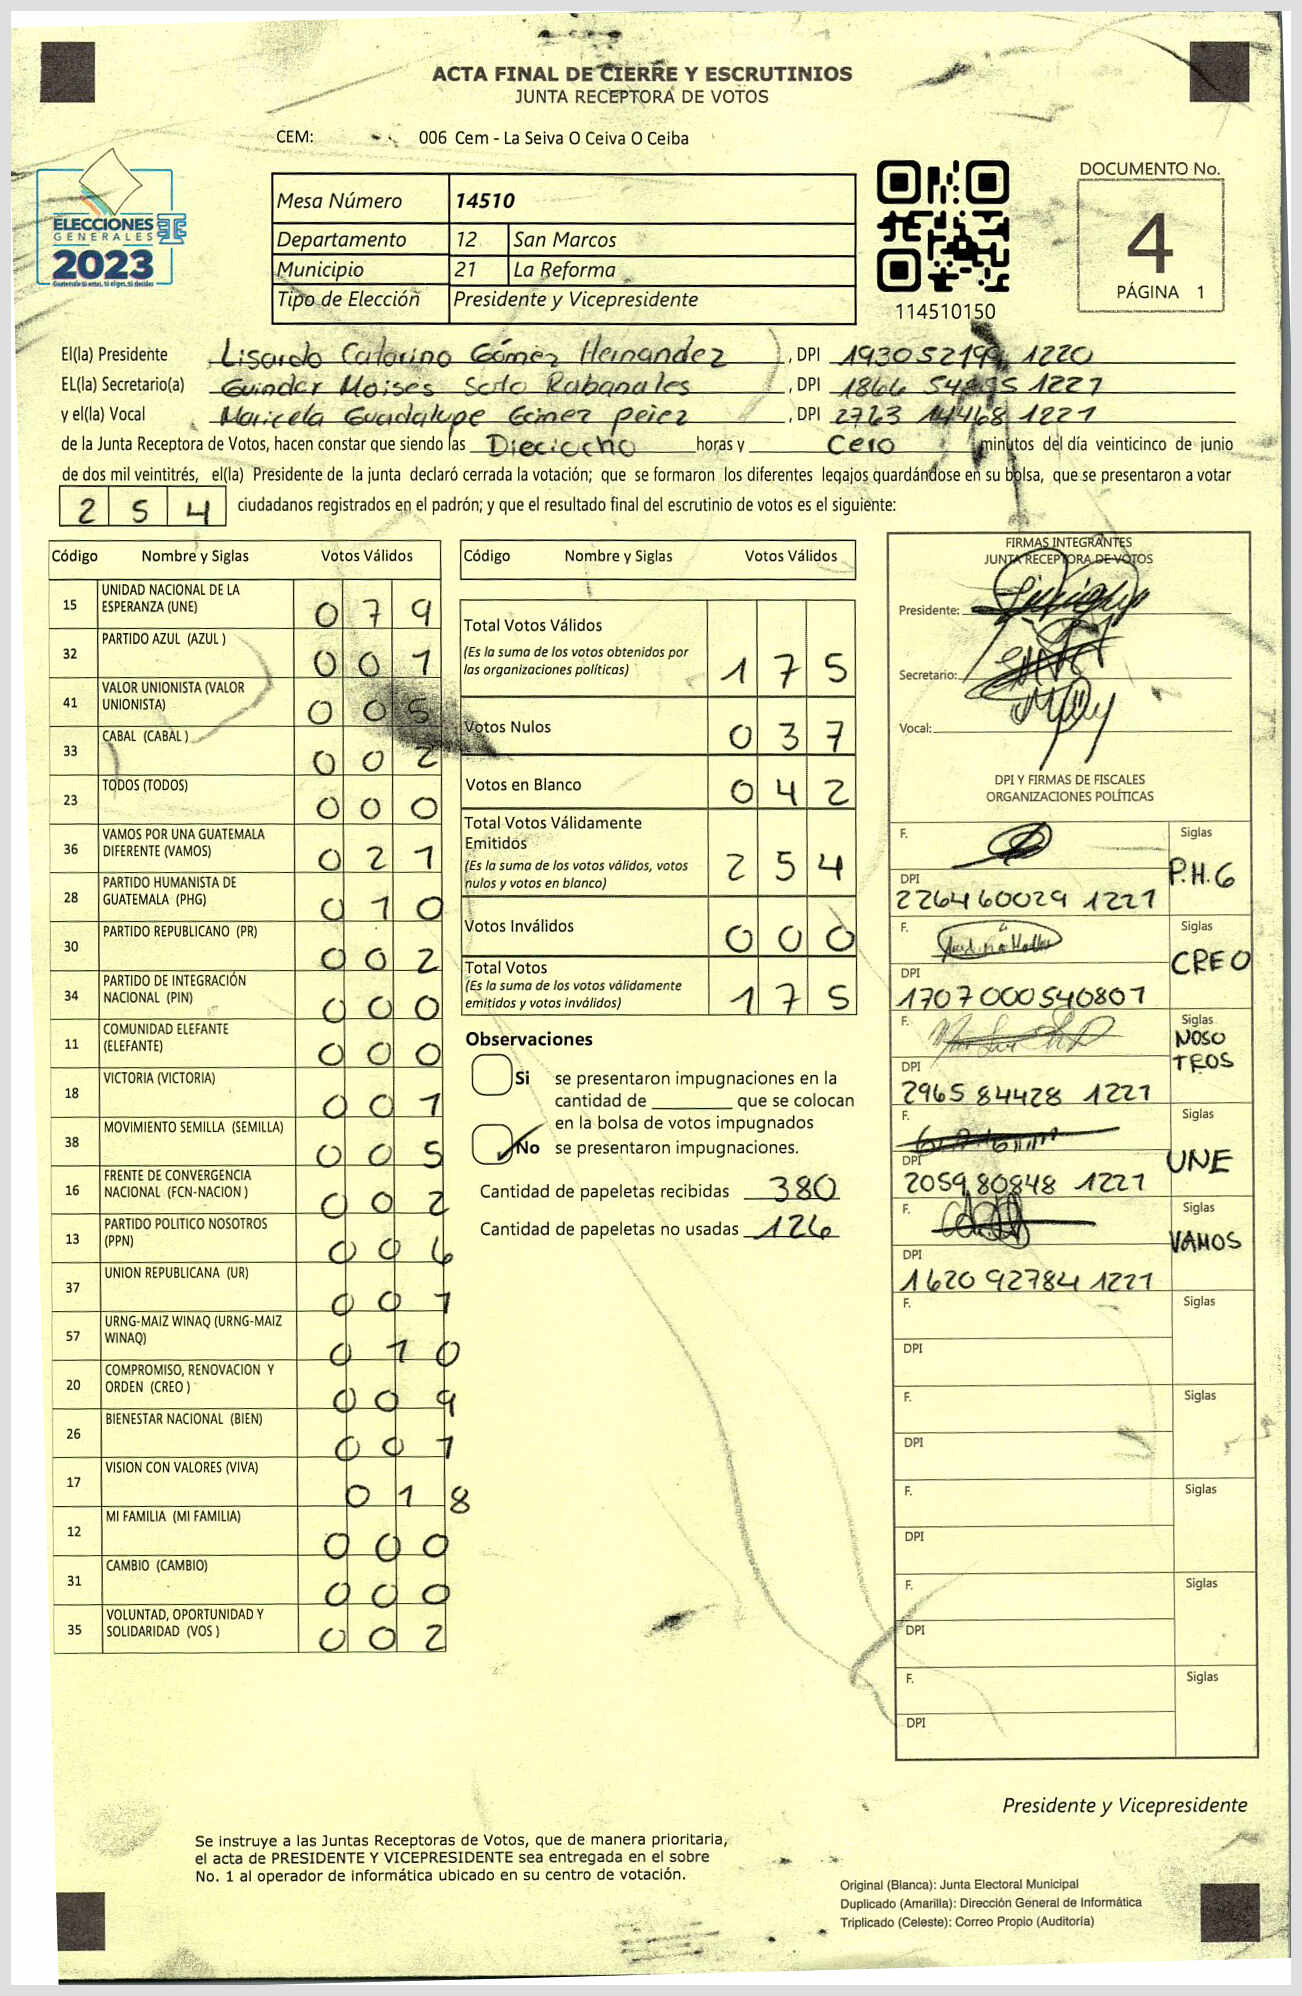 ACTA FINAL DE CIERRE Y ESCRUTINIOS
JUNTA RECEPTORA DE VOTOS
CEM: 006 Cem - La Seiva O Ceiva O Ceiba
ELECCIONES
GENERALES
2023
Guatemala tú eres, tú eliges, tú decides
Mesa Número 14510
Departamento 12 San Marcos
Municipio 21 La Reforma
Tipo de Elección Presidente y Vicepresidente
114510150
DOCUMENTO No.
4
PÁGINA 1
El(la) Presidente Lisardo Catarino Gómez Hernandez, DPI 1220
EL(la) Secretario(a) Moises Soto Rabanales, DPI 1866 1221
y el(la) Vocal Maricela Guadalupe Gómez Pérez, DPI 2763 14468 1221
de la Junta Receptora de Votos, hacen constar que siendo las Dieciocho horas y Cero minutos del día veinticinco de junio
de dos mil veintitrés, el(la) Presidente de la junta declaró cerrada la votación; que se formaron los diferentes legajos guardándose en su bolsa, que se presentaron a votar
2 5 4 ciudadanos registrados en el padrón; y que el resultado final del escrutinio de votos es el siguiente:
Código Nombre y Siglas Votos Válidos
15 UNIDAD NACIONAL DE LA
ESPERANZA (UNE) 0 7 9
32 PARTIDO AZUL (AZUL ) 0 0 1
41 VALOR UNIONISTA (VALOR
UNIONISTA) 0 0 5
33 CABAL (CABAL ) 0 0 2
23 TODOS (TODOS) 0 0 0
36 VAMOS POR UNA GUATEMALA
DIFERENTE (VAMOS) 0 2 1
28 PARTIDO HUMANISTA DE
GUATEMALA (PHG) 0 1 0
30 PARTIDO REPUBLICANO (PR) 0 0 2
34 PARTIDO DE INTEGRACIÓN
NACIONAL (PIN) 0 0 0
11 COMUNIDAD ELEFANTE
(ELEFANTE) 0 0 0
18 VICTORIA (VICTORIA) 0 0 1
38 MOVIMIENTO SEMILLA (SEMILLA) 0 0 5
16 FRENTE DE CONVERGENCIA
NACIONAL (FCN-NACION ) 0 0 2
13 PARTIDO POLITICO NOSOTROS
(PPN) 0 0 6
37 UNION REPUBLICANA (UR) 0 0 1
57 URNG-MAIZ WINAQ (URNG-MAIZ
WINAQ) 0 1 0
20 COMPROMISO, RENOVACION Y
ORDEN (CREO ) 0 0 9
26 BIENESTAR NACIONAL (BIEN) 0 0 1
17 VISION CON VALORES (VIVA) 0 1 8
12 MI FAMILIA (MI FAMILIA) 0 0 0
31 CAMBIO (CAMBIO) 0 0 0
35 VOLUNTAD, OPORTUNIDAD Y
SOLIDARIDAD (VOS ) 0 0 2
Código Nombre y Siglas Votos Válidos
Total Votos Válidos
(Es la suma de los votos obtenidos por
las organizaciones políticas) 1 7 5
Votos Nulos 0 3 7
Votos en Blanco 0 4 2
Total Votos Válidamente
Emitidos
(Es la suma de los votos válidos, votos
nulos y votos en blanco) 2 5 4
Votos Inválidos 0 0 0
Total Votos
(Es la suma de los votos válidamente
emitidos y votos inválidos) 1 7 5
Observaciones
Si se presentaron impugnaciones en la
cantidad de ________ que se colocan
en la bolsa de votos impugnados
No se presentaron impugnaciones.
Cantidad de papeletas recibidas 380
Cantidad de papeletas no usadas 126
FIRMAS INTEGRANTES
JUNTA RECEPTORA DE VOTOS
Presidente:
Secretario:
Vocal:
DPI Y FIRMAS DE FISCALES
ORGANIZACIONES POLÍTICAS
F. Siglas
P.H.G
DPI
226460029 1221
F. Siglas
CREO
DPI
1707000540801
F. Siglas
NOSO
TROS
DPI
2965 84428 1221
F. Siglas
UNE
DPI
2059 80848 1221
F. Siglas
VAMOS
DPI
1620 92784 1221
F. Siglas
DPI
F. Siglas
DPI
F. Siglas
DPI
F. Siglas
DPI
F. Siglas
DPI
Presidente y Vicepresidente
Se instruye a las Juntas Receptoras de Votos, que de manera prioritaria,
el acta de PRESIDENTE Y VICEPRESIDENTE sea entregada en el sobre
No. 1 al operador de informática ubicado en su centro de votación.
Original (Blanca): Junta Electoral Municipal
Duplicado (Amarilla): Dirección General de Informática
Triplicado (Celeste): Correo Propio (Auditoría)